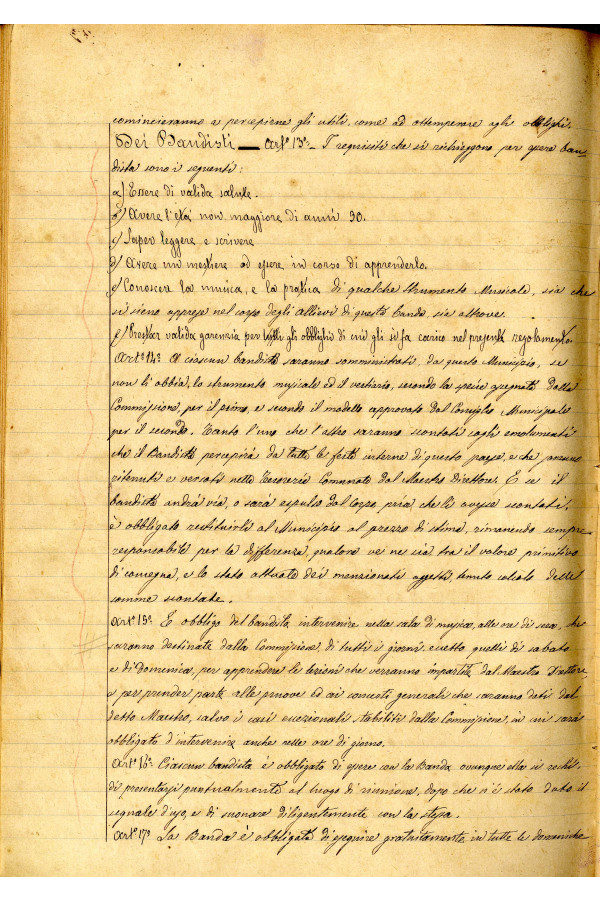 comincieranno a percepirne gli utili, come ad ottemperare agli obblighi.
Dei Bandisti — Art.º 13º – I requisiti che si richieggono per essere ban-
dista sono i seguenti:
a) Essere di valida salute.
b) Avere l'età non maggiore di anni 30.
c) Saper leggere e scrivere
d) Avere un mestiere od essere in corso di apprenderlo.
e) Conoscere la musica, e la pratica di qualche strumento Musicale, sia che
si sieno appresi nel corpo degli Allievi di questa banda, sia altrove.
f) Prestar valida garenzia per tutti gli obblighi di cui gli si fa carico nel presente regolamento.
Art.º 14º A ciascun bandista saranno somministrati, da questo Municipio, se
non li abbia, lo strumento musicale ed il vestiario, secondo la spesa segnata dalla
Commissione, per il primo, e secondo il modello approvato dal Consiglio Municipale
per il secondo. Tanto l'uno che l'altro saranno scontati cogli emolumenti
che il Bandista percepirà da tutte le feste interne di questo paese, e che saranno
ritenuti e versati nella Tesoreria Comunale dal Maestro Direttore. E se il
bandista andrà via, o sarà espulso dal Corpo, pria che li avesse scontati,
è obbligato restituirli al Municipio al prezzo di stima, rimanendo sempre
responsabile per la differenza, qualora ve ne sia tra il valore primitivo
di consegna, e lo stato attuale dei menzionati oggetti, tenuto calcolo delle
somme scontate.
Art.º 15º È obbligo del bandista intervenire nella sala di musica, alle ore di sera, che
saranno destinate dalla Commissione, di tutti i giorni, eccetto quelli di sabato
e di Domenica, per apprendere le lezioni che verranno impartite dal Maestro Direttore
e per prender parte alle pruove ed ai concerti generali che saranno dati dal
detto Maestro, salvo i casi eccezionali stabiliti dalla Commissione, in cui sarà
obbligato d'intervenire anche nelle ore di giorno.
Art.º 16º Ciascun bandista è obbligato di essere con la Banda ovunque ella si rechi,
di presentarsi puntualmente al luogo di riunione, dopo che si è stato dato il
segnale d'uso, e di suonare diligentemente con la stessa.
Art.º 17º La Banda è obbligata di eseguire gratuitamente, in tutte le domeniche